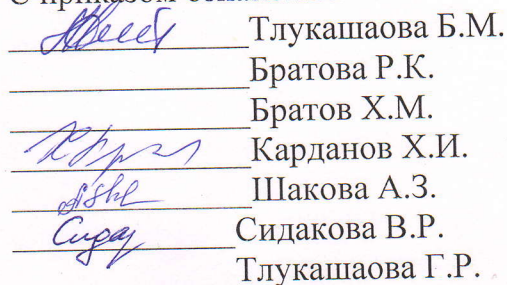 С приказом
Тлукашаова Б.М.
Братова Р.К.
Братов Х.М.
Карданов Х.И.
Шакова А.З.
Сидакова В.Р.
Тлукашаова Г.Р.